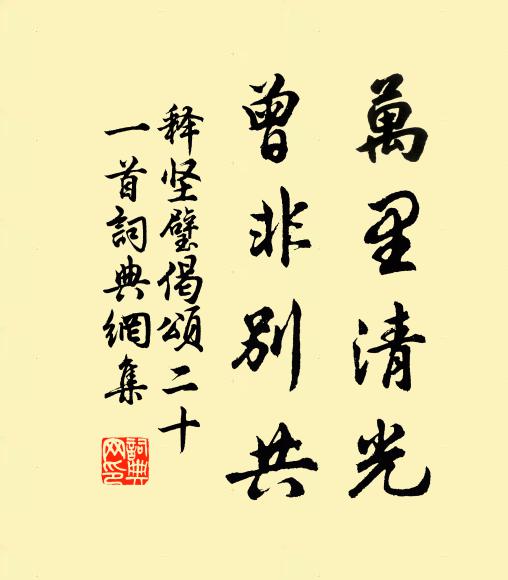 萬里清光
曾非别共
释坚璧偈頌二十
一首詞典網集
詞典网印